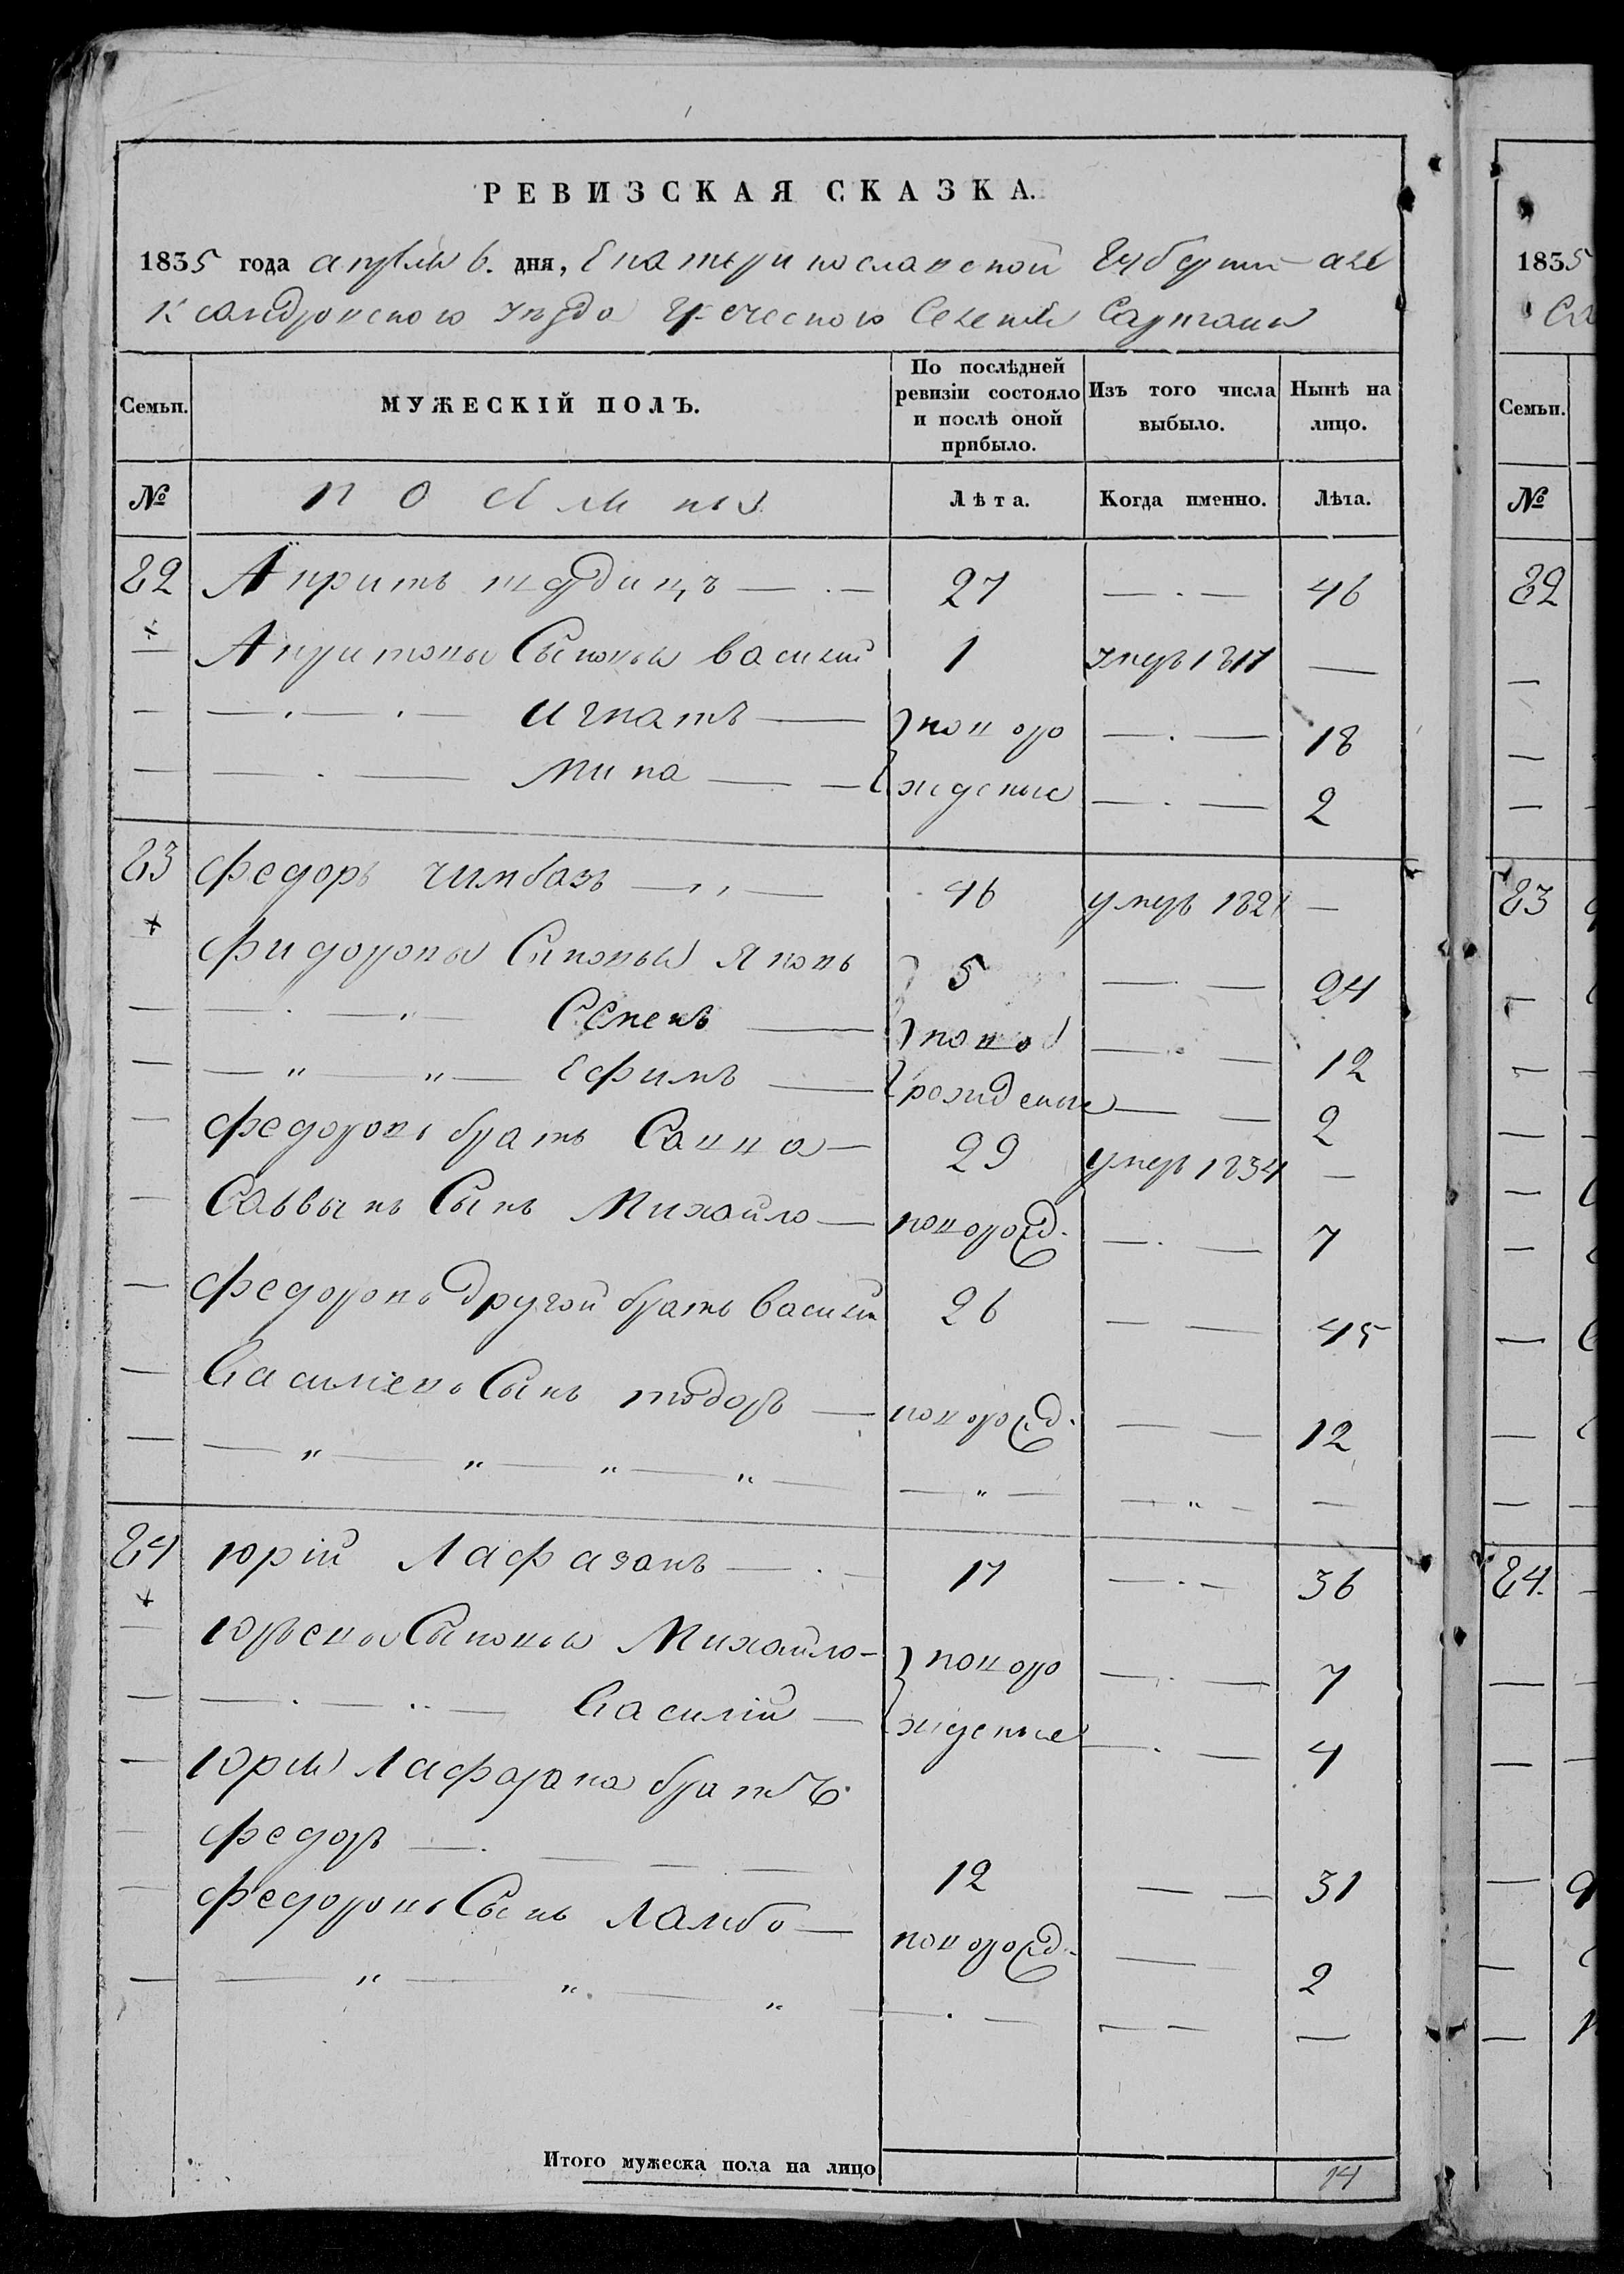 РЕВИЗСКАЯ СКАЗКА.
1835 года апреля 6. дня, Екатеринославской Губернии Але
ксандровского уезда Греческого Селения Сартаны
Семьи. МУЖЕСКІЙ ПОЛЪ. По послѣдней ревизіи состояло и послѣ оной прибыло. Изъ того числа выбыло. Нынѣ на лицо.
№ Лѣта. Когда именно. Лѣта.
82 27 — . — 46
Сыновья василий 1 умеръ 1817 —
— . — . — Игнатъ — новоро — . — 18
— . — Мина — жденые — . — 2
83 Федоръ Чимбазъ — „ — 46 умеръ 1821 —
Фидоровы Сыновья Яковъ 5 — . — 24
— . — . — Семенъ —ново — . — 12
— „ — „ — Ефимъ — рожденые — — 2
Федоровъ братъ Савва — 29 умеръ 1834 —
Саввынъ Сынъ Михайло — новорожд. — . — 7
Федоровъ другой братъ василий 26 — — 45
Василіевъ Сынъ тодоръ — новорожд. — — 12
— „ — „ — „ — „ — — „ — — „ — —
84 Юрій Лафазанъ — . — 17 — . — 36
Юрьевы Сыновья Михайло — новоро — . — 7
— . — .. — Василій — жденые — . — 4
Юрия Лафазана братъ
Федоръ — . — — . — 12 — — 31
Федоровъ Сынъ Ламбо — новорожд. — — 2
— „ — „ — „ — . — — — —
Итого мужеска пола на лицо 14
1835
Семьи.
№
82
83
84.